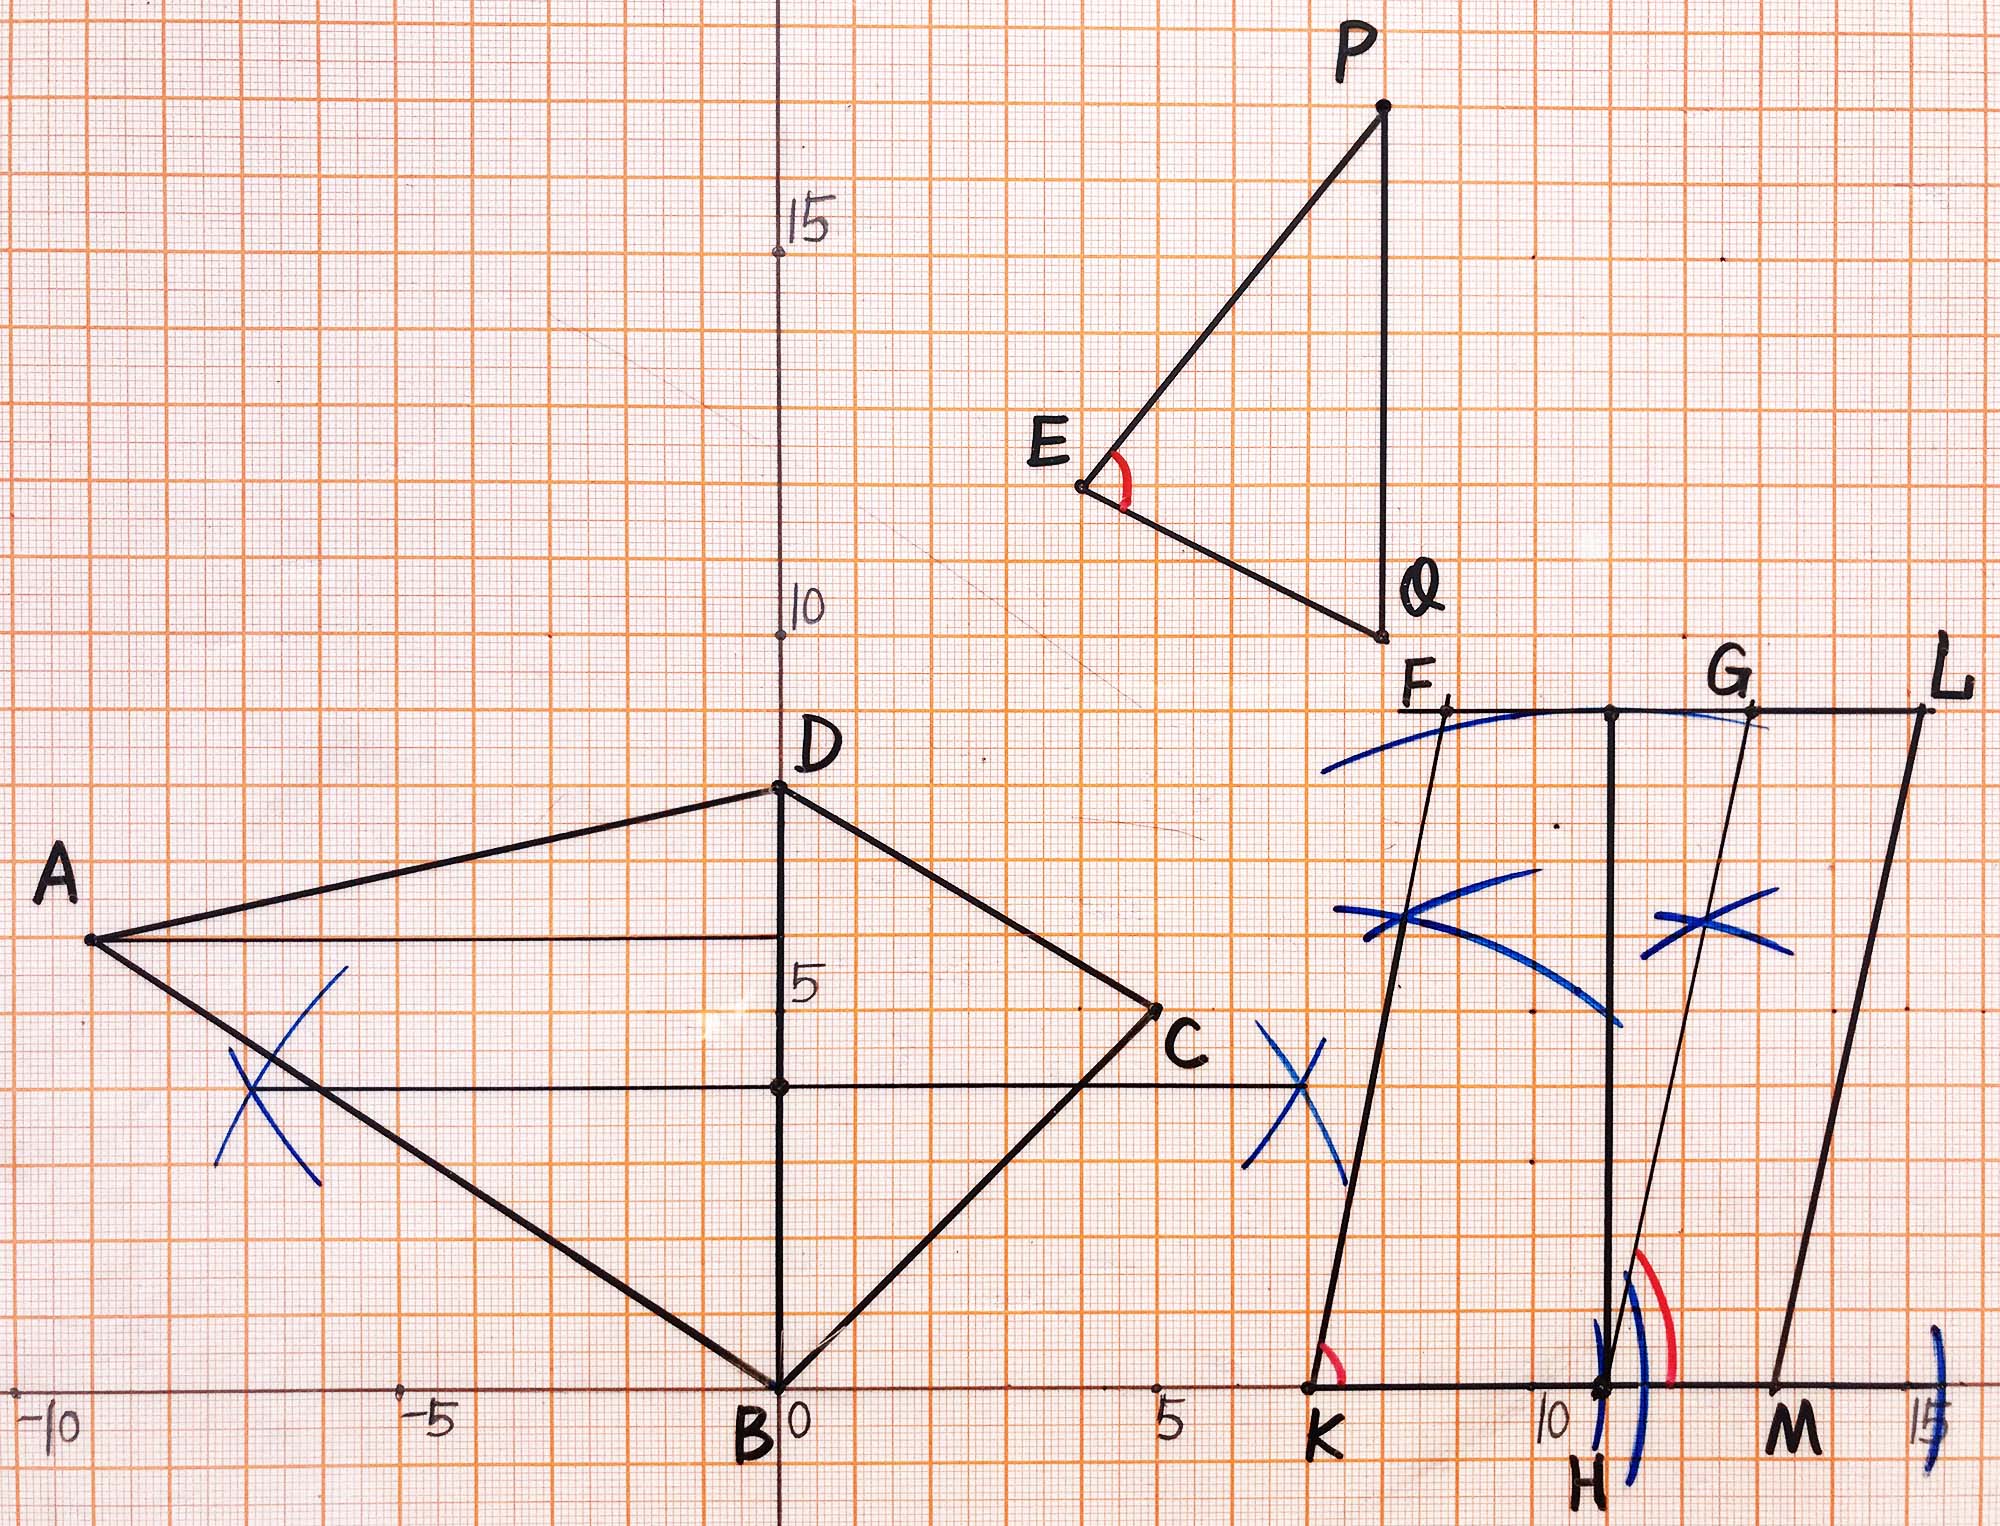 P
15
E
Q
10
F G L
D
A
5
C
-10 -5 B 0 5 K 10 M 15
H